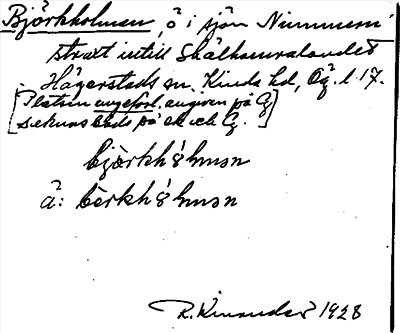 Björkholmen, ö i sjön Nimmern
strax intill Skälhamralandet
Hägerstads sn. Kinda hd, Ög. l. 17.
[Platsen angiven på
på ek och G.]
björkhòlmən
ä: bèrkhòlmən
R. Kinander 1928